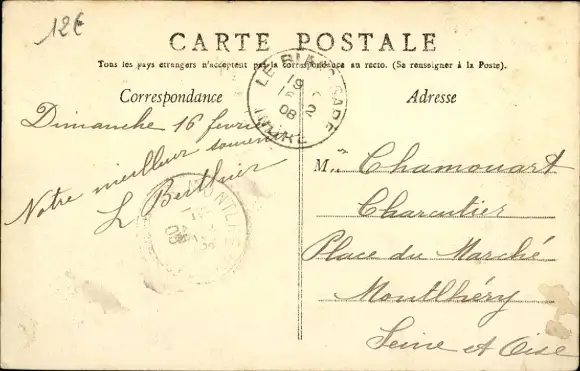 12€
CARTE POSTALE
Tous les pays étrangers n'acceptent pas la correspondance au recto. (Se renseigner à la Poste).
Correspondance
Adresse
LE BLANC GARE
19
08
INDRE
Dimanche 16 février
Notre meilleur souvenir
L Berthier
MONTLHÉRY
08
M.. Chamouart
Charcutier
Place du Marché
Montlhéry
Seine et Oise